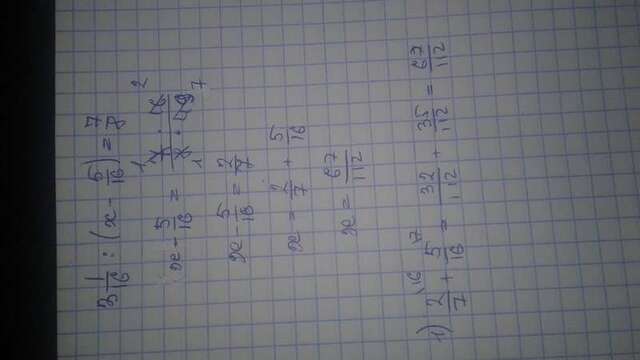 3 1/16 : (x - 5/16) = 7/8
x - 5/16 = 7/8 : 16/49
x - 5/16 = 2/7
x = 2/7 + 5/16
x = 67/112
1) 2/7 \16 + 5/16 \7 = 32/112 + 35/112 = 67/112